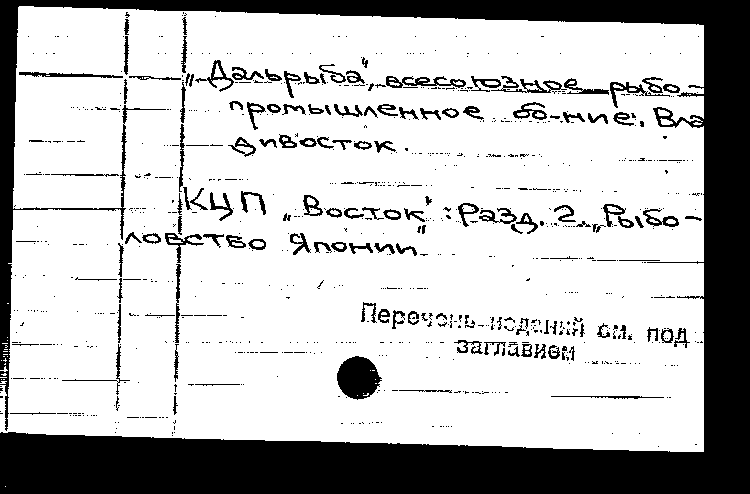 „Дальрыба", всесоюзное рыбо-
промышленное об-ние. Вла
дивосток.
КЦП „Восток": Разд. 2. „Рыбо-
ловство Японии"
Перечень изданий см. под
заглавием